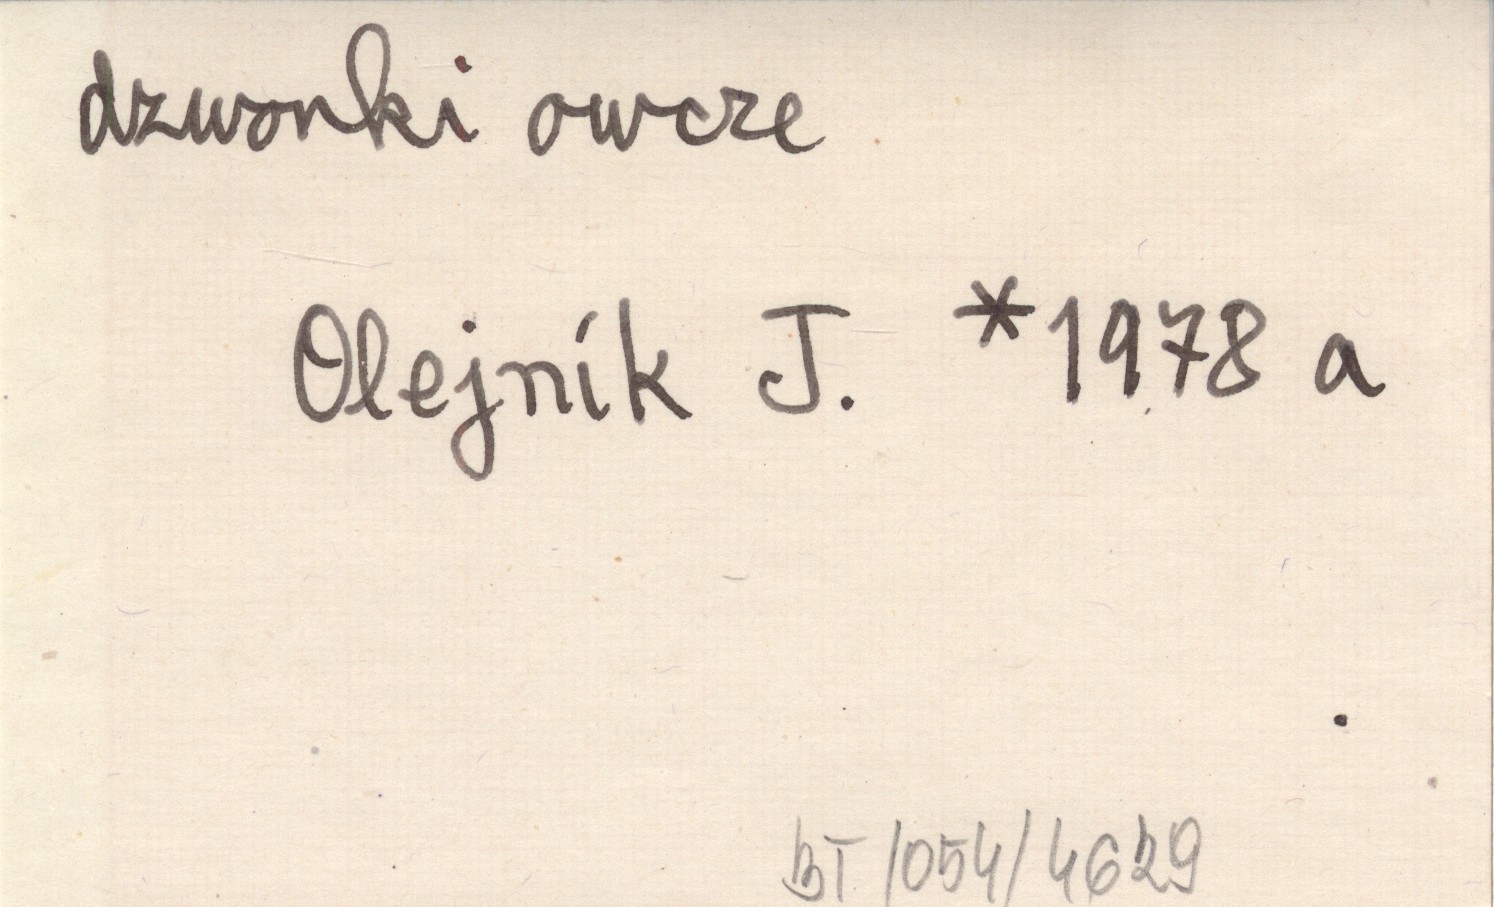 dzwonki owcze
Olejník J. *1978 a
BT/054/4629